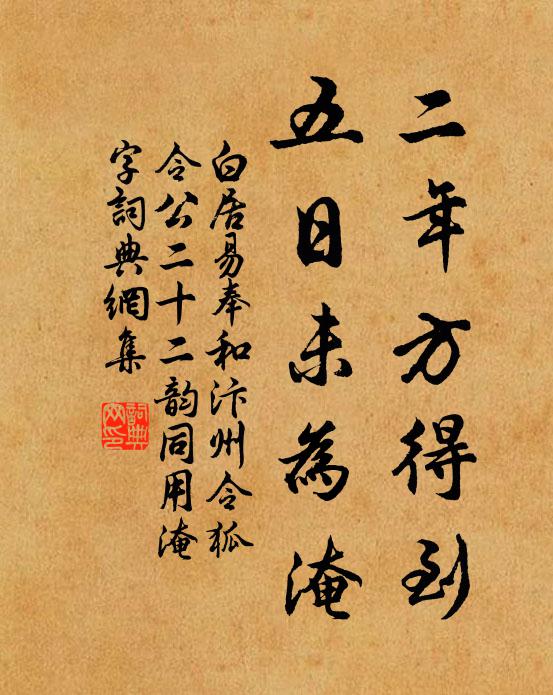 二年方得到
五日未為淹
白居易奉和汴州令狐
令公二十二韵同用淹
字詞典網集
詞典
网印